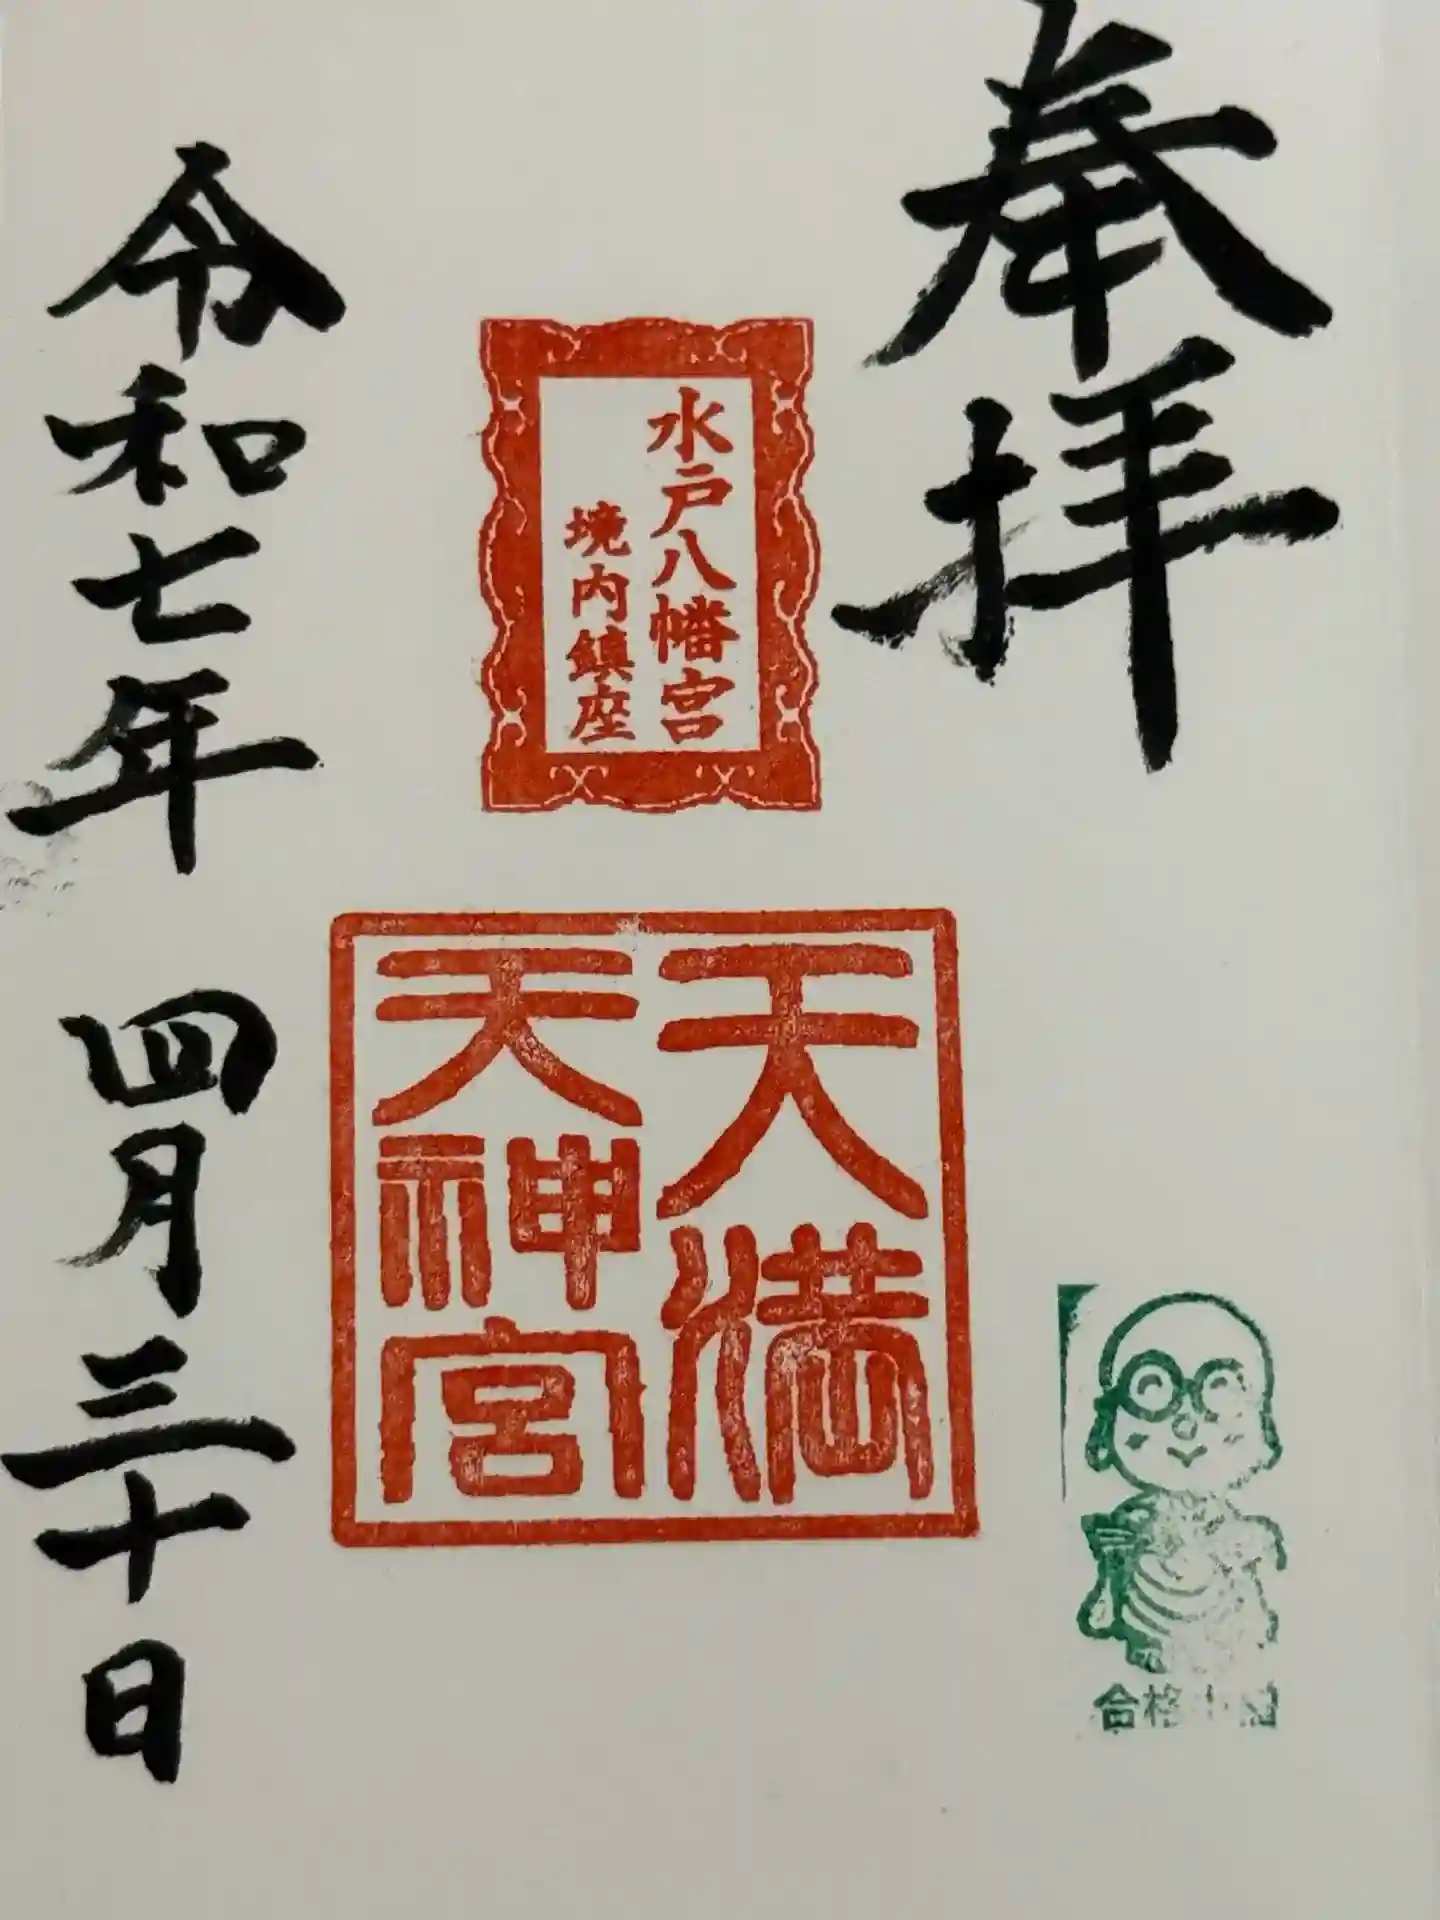 奉拝
水戸八幡宮
境内鎮座
天満
天神宮
令和七年 四月三十日
合格